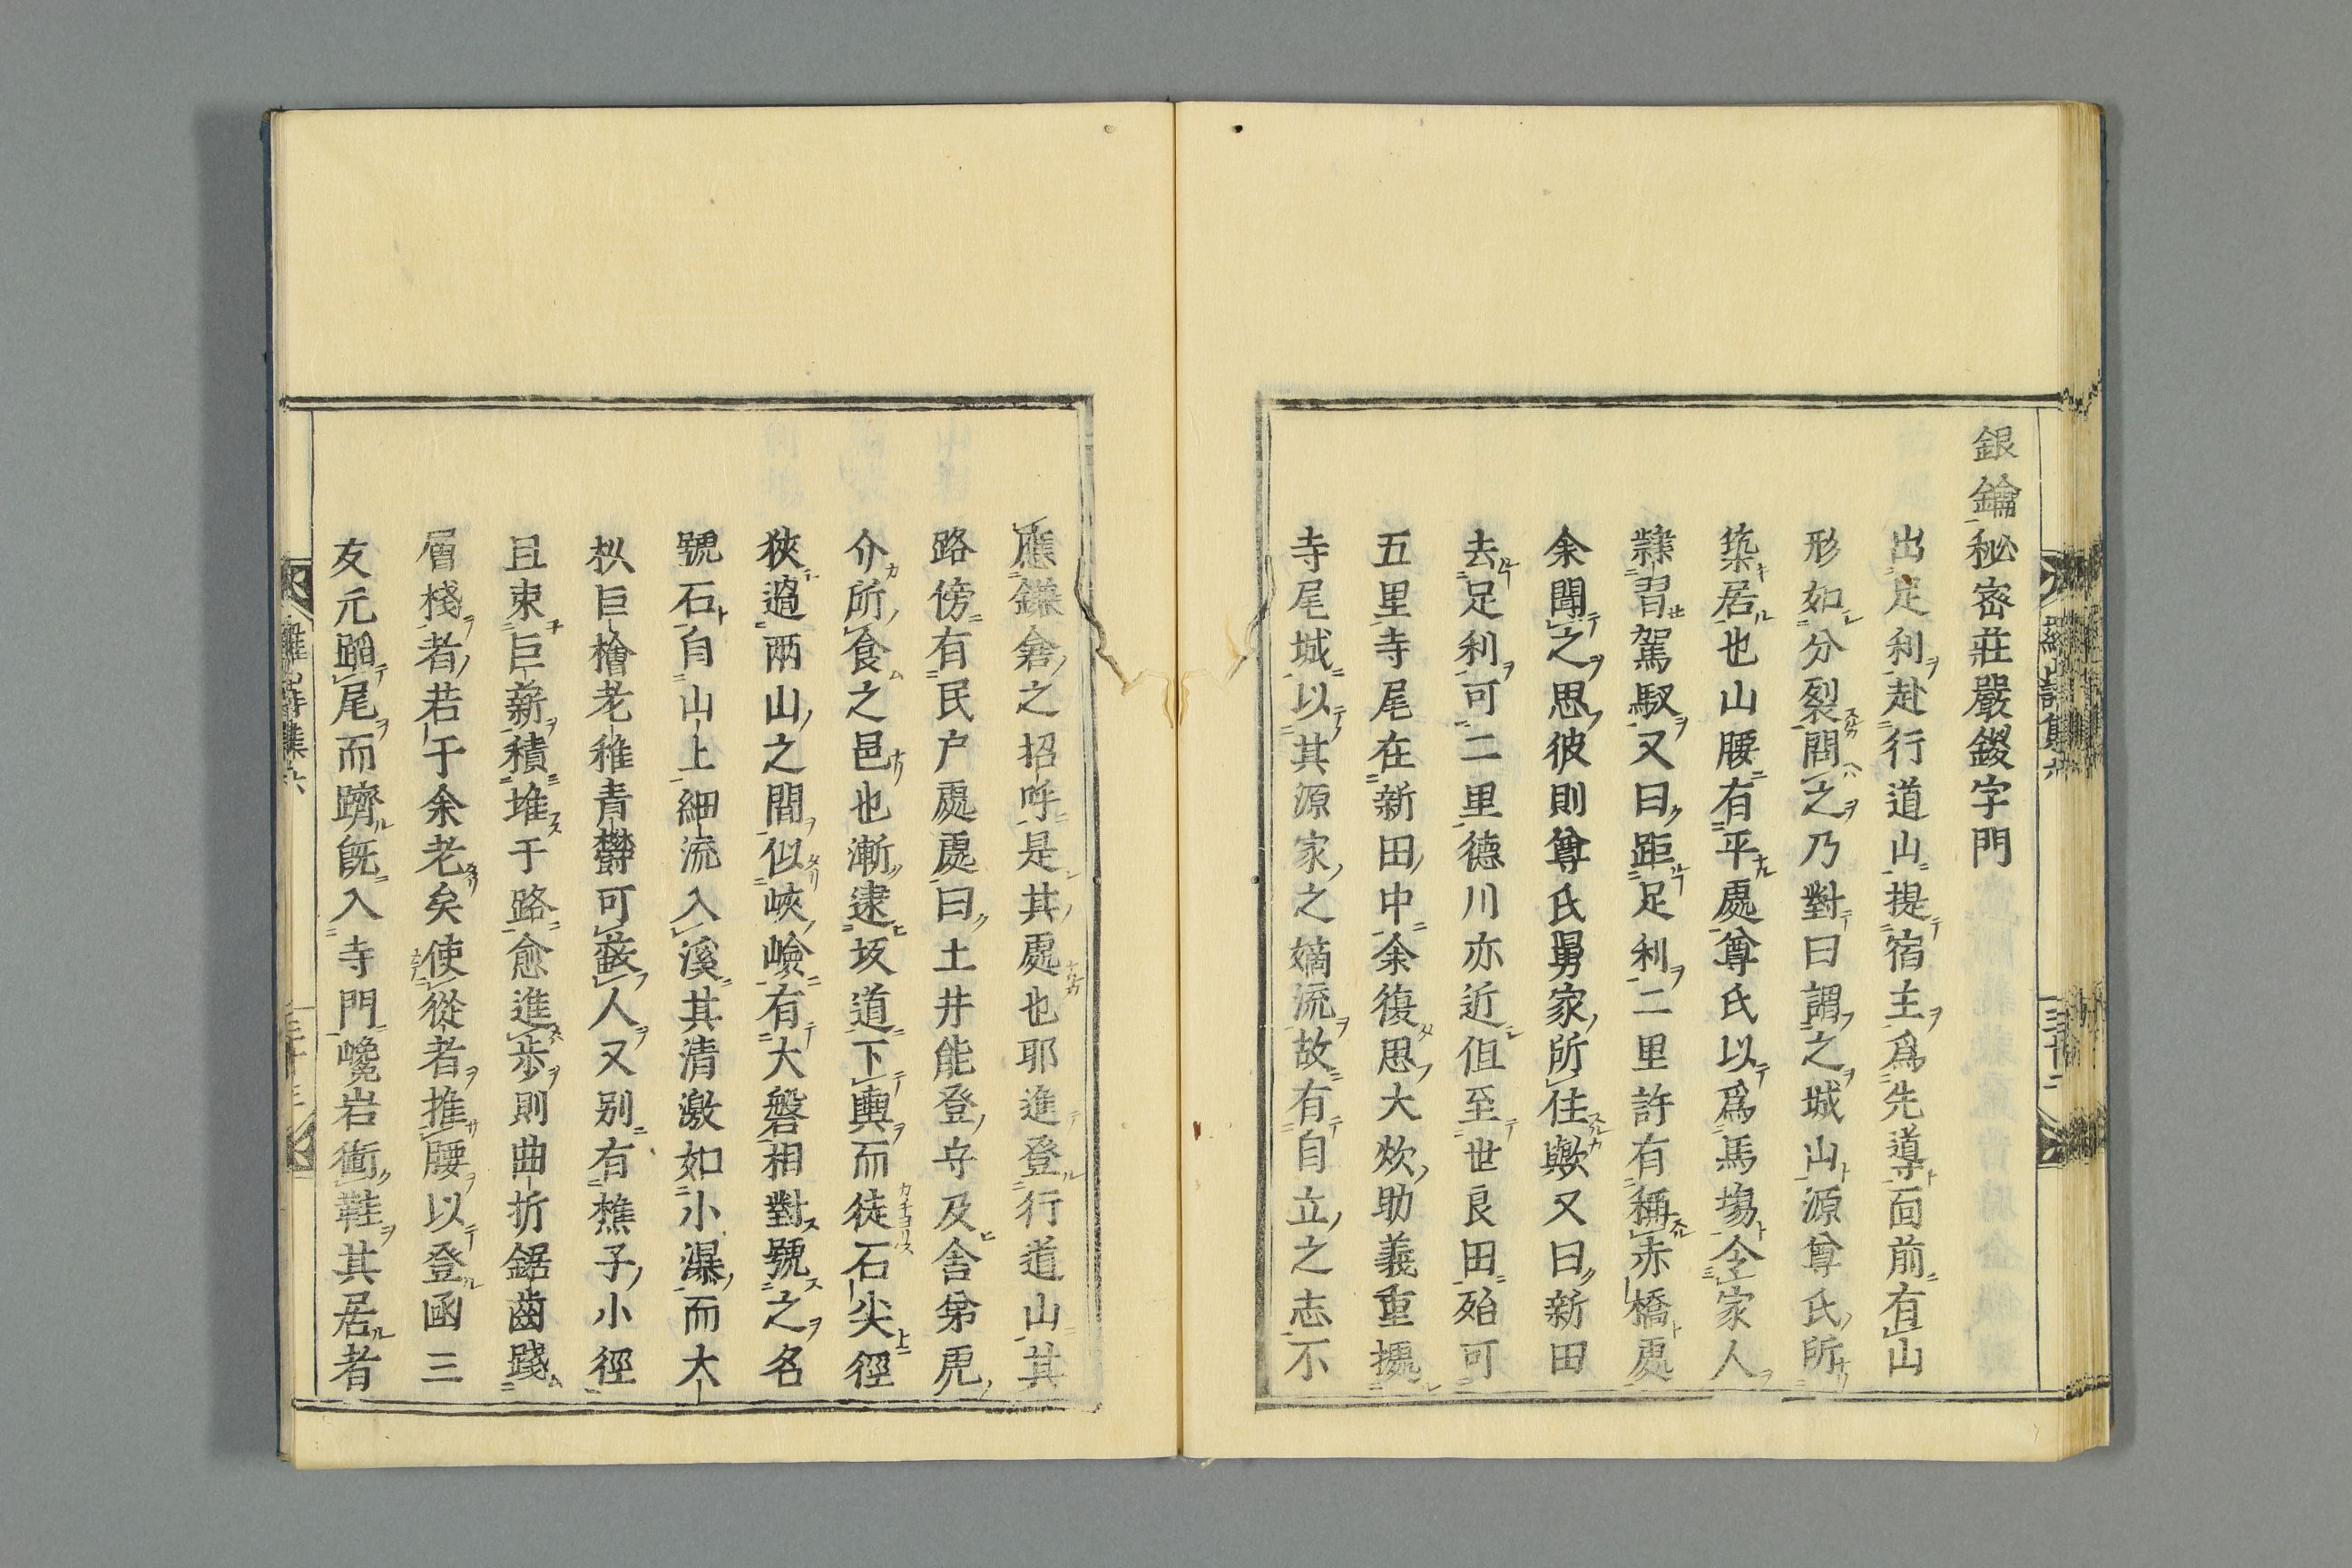 銀鑰秘密莊嚴鍐字門
出足利赴行道山提宿主爲先導面前有山
形如分裂問之乃對曰謂之城山源尊氏所
築居也山腰有平處尊氏以爲馬塲令家人
隷習駕馭又曰距足利二里許有稱赤橋處
余聞之思彼則尊氏舅家所住歟又曰新田
去足利可二里德川亦近但至世良田殆可
五里寺尾在新田中余復思大炊助義重據
寺尾城以其源家之嫡流故有自立之志不
應鎌倉之招呼是其處也耶進登行道山其
路傍有民户處處曰土井能登守及舎弟兵
介所食之邑也漸逮坂道下輿而徒石尖徑
狹過兩山之間似峽嶮有大磐相對號之名
號石自山上細流入溪其清激如小瀑而大
杉巨檜老稚青欝可蔽人又别有樵子小徑
且束巨薪積堆于路愈進歩則曲折鋸齒踐
層棧者若干余老矣使從者推腰以登凾三
友元蹈尾而躋旣入寺門巉岩衝鞋其居者
羅山詩集六
三十二